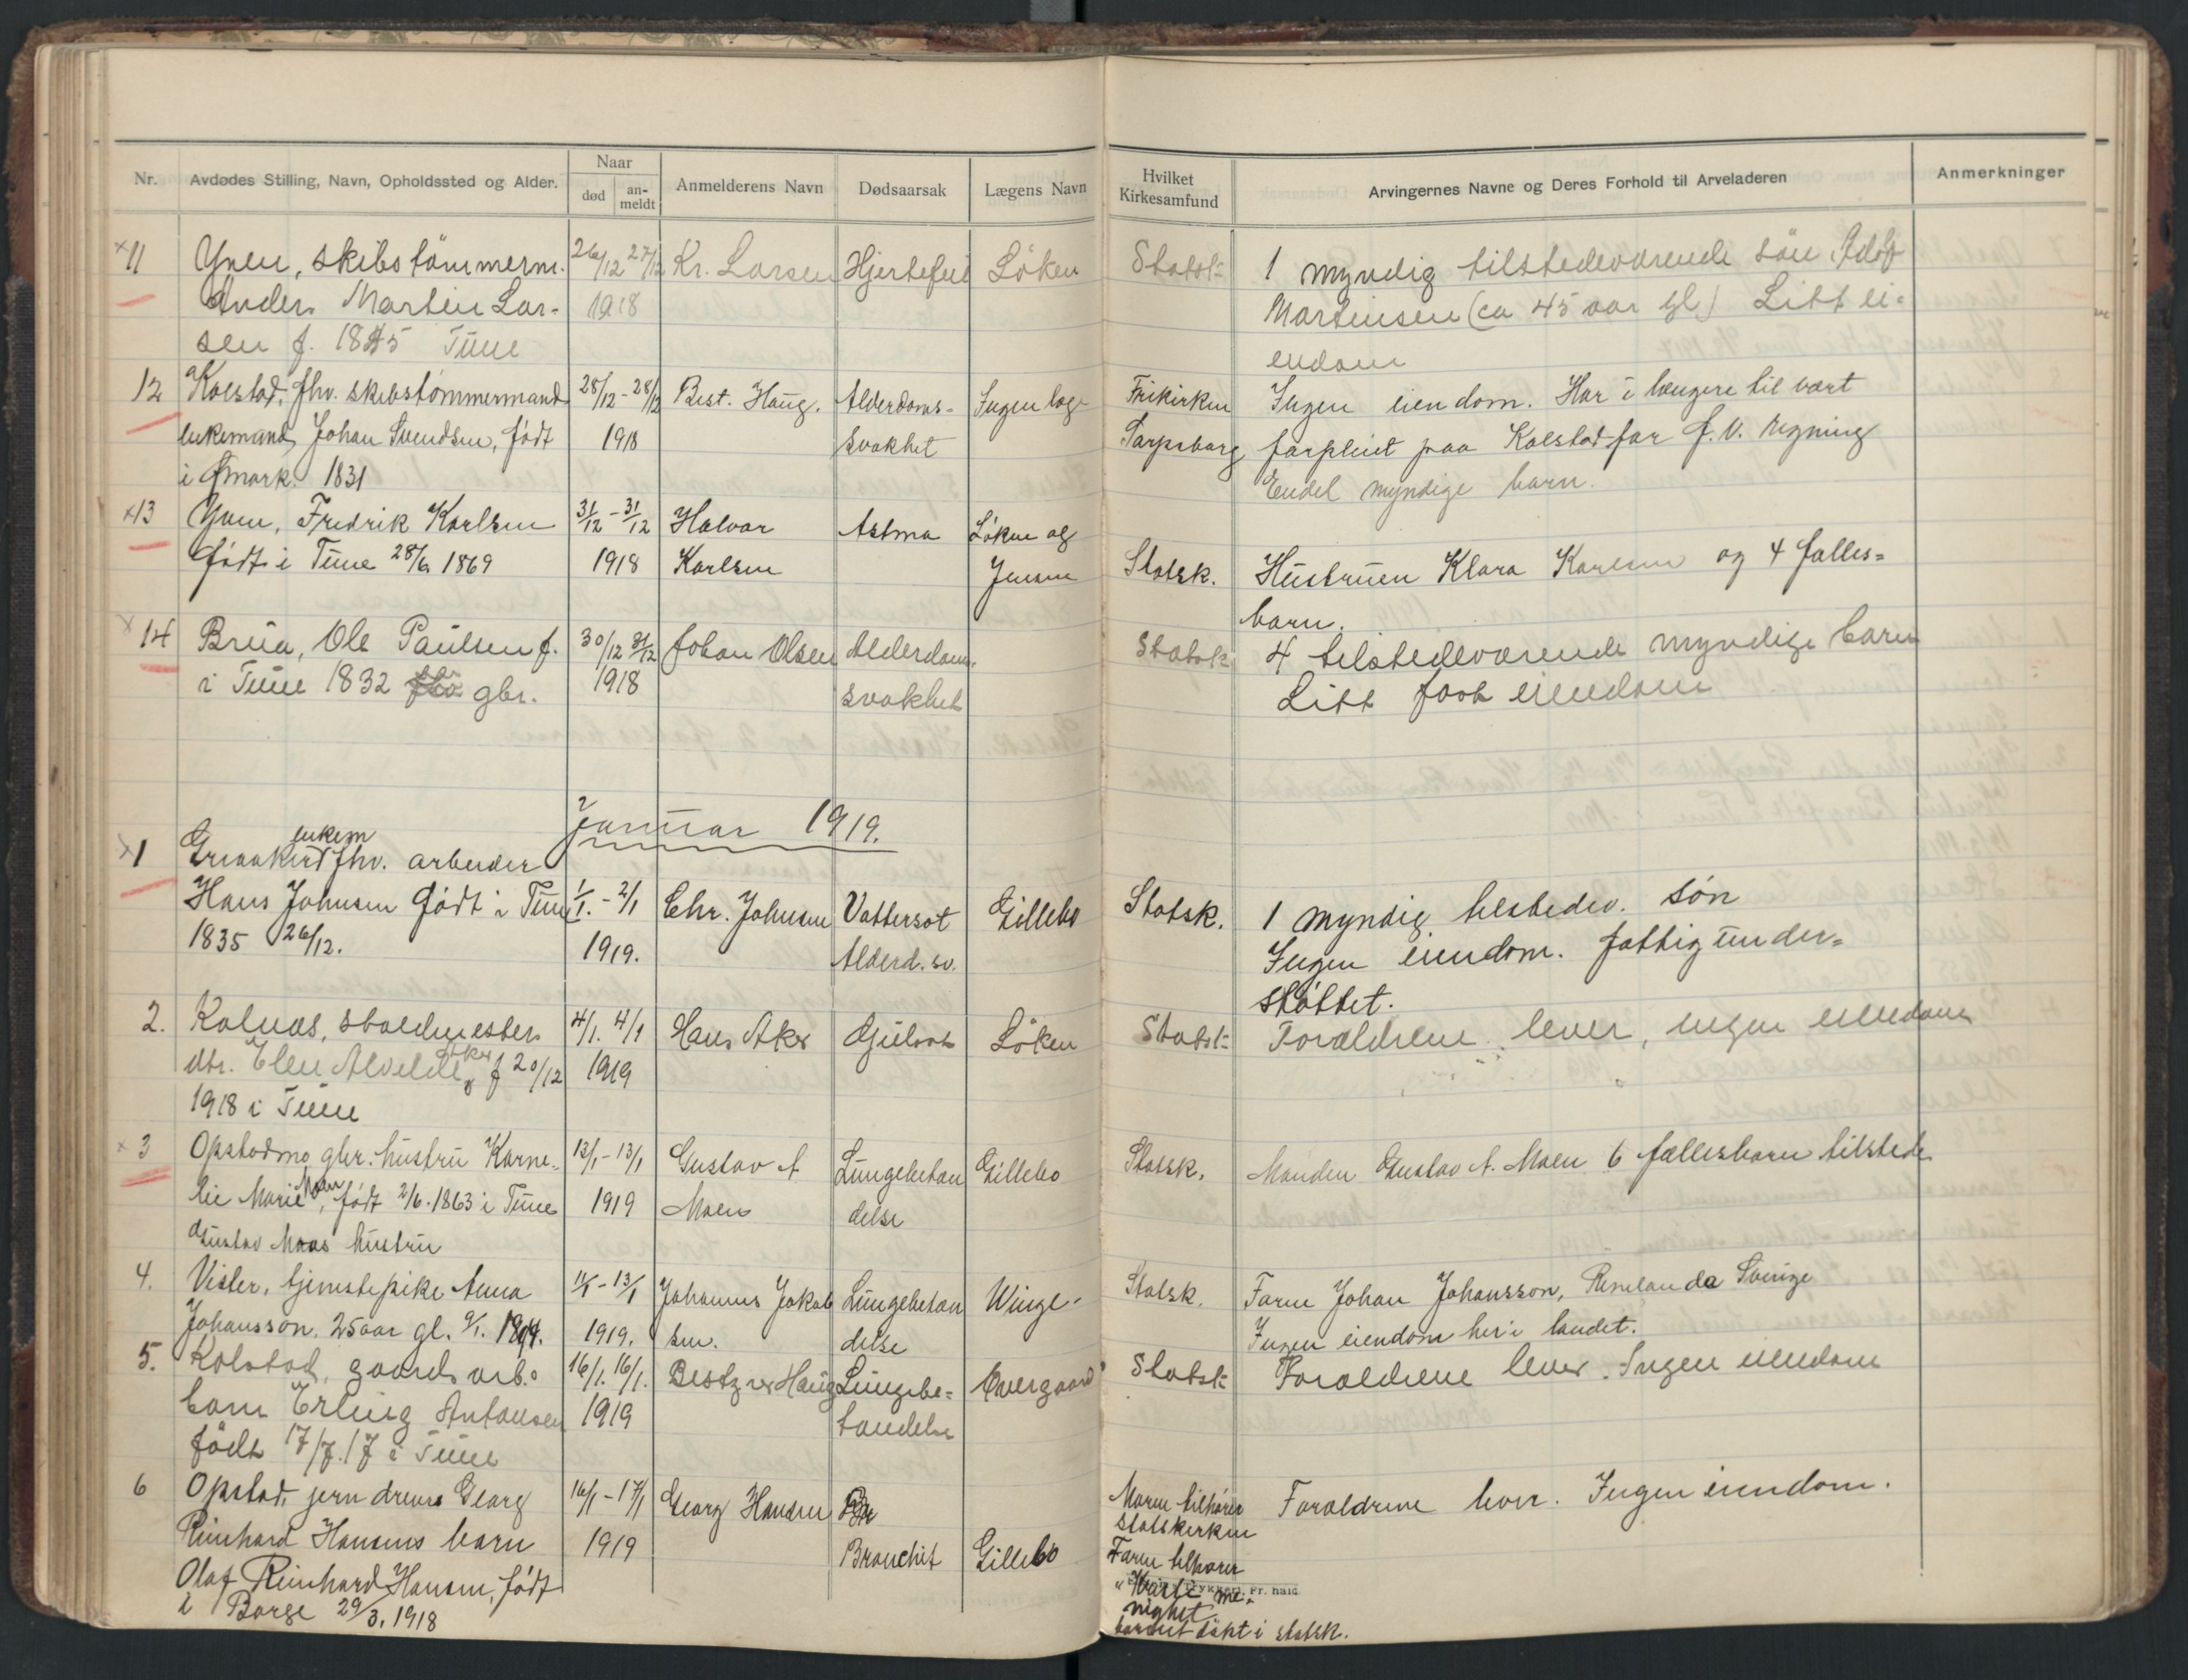 Nr.
Avdødes Stilling, Navn, Opholdssted og Alder.
Naar
død
an-
meldt
Anmelderens Navn
Dødsaarsak
Lægens Navn
Hvilket
Kirkesamfund
Arvingernes Navne og Deres Forhold til Arveladeren
Anmerkninger
11 Yven, skibstömmerm. 26/12 27/12 Kr. Larsen Hjertefeil Löken Statsk. 1 myndig tilstedeværende sön
Anders Martin Lar- 1918 Martinsen (ca 45 aar gl) Litt ei-
sen f. 1845 Tune endom
12 Kolstad, fhv. skibstømmermand 28/12 - 28/12 Best. Haug. Alderdoms- Ingen læge Frikirken Ingen eiendom. Har i længere tid vært
enkemand, Johan Svendsen, født 1918 svakhet Sarpsborg forpleiet paa Kolstad for f.v. regning
i 1831 Endel myndige barn.
13 Yven, Fredrik Karlsen 31/12 - 31/12 Halvor Astma Løken og
født i Tune 28/6 1869 1918 Karlsen Jensen Statsk. Hustruen Klara Karlsen og 4 fælles=
barn.
14 Brua, Ole Paulsen f. 30/12 31/12 Johan Olsen Alderdoms- Statsk 4 tilstedeværende myndige barn
i Tune 1832 gbr. 1918 svakhet Litt fast eiendom
Januar 1919.
enkem
1 Greaaker fhv. arbeider
Hans Johnsen født i Tune 1/1. - 2/1 Chr. Johnsen Vattersot Gillebo Statsk. 1 myndig tilstedev. søn
1835 26/12. 1919. Alderd. sv. Ingen eiendom. fattigunder=
støttet.
2. Kalnes, staldmesters 4/1. 4/1 Hans Aker Gulsot Löken Statsk Forældrene lever, ingen eiendom
dtr. Elen Alvilde Aker f 20/12 1919
1918 i Tune
3 Opstadmo, gbr. hustru Karne- 13/1 - 13/1 Gustav A Lungebetæn Gillebo Statsk. Manden Gustav A. Moen 6 fællesbarn tilstede
lie Marie Moen, født 2/6. 1863 i Tune 1919 Moen delse
Gustav Moens hustru
4. Vister, tjenstepike Anna 11/1 - 13/1 Johannes Jakob Lungebetæn Winge Statsk. Faren Johan Johansson, Sverige
Johansson. 25 aar gl. 1919. sen. delse Ingen eiendom her i landet.
5. Kolstad, gaards arb. 16/1. 16/1. Bestyrer Haug Lungebe= Overgaard Statsk Forældrene lever. Ingen eiendom
barn Erling Antonsen 1919 tændelse
födt 17/7.17 i Tune
6 Opstad, jern dreier Georg 16/1 - 17/1 Georg Hansen Moren tilhører Forældrene lever. Ingen eiendom.
Reinhard Hansens barn 1919 Bronchit Gillebo statskirken
Olaf Reinhard Hansen, født Faren tilhører
i Borge 29/3. 1918 me-
nighet.
barnet døpt i statsk.